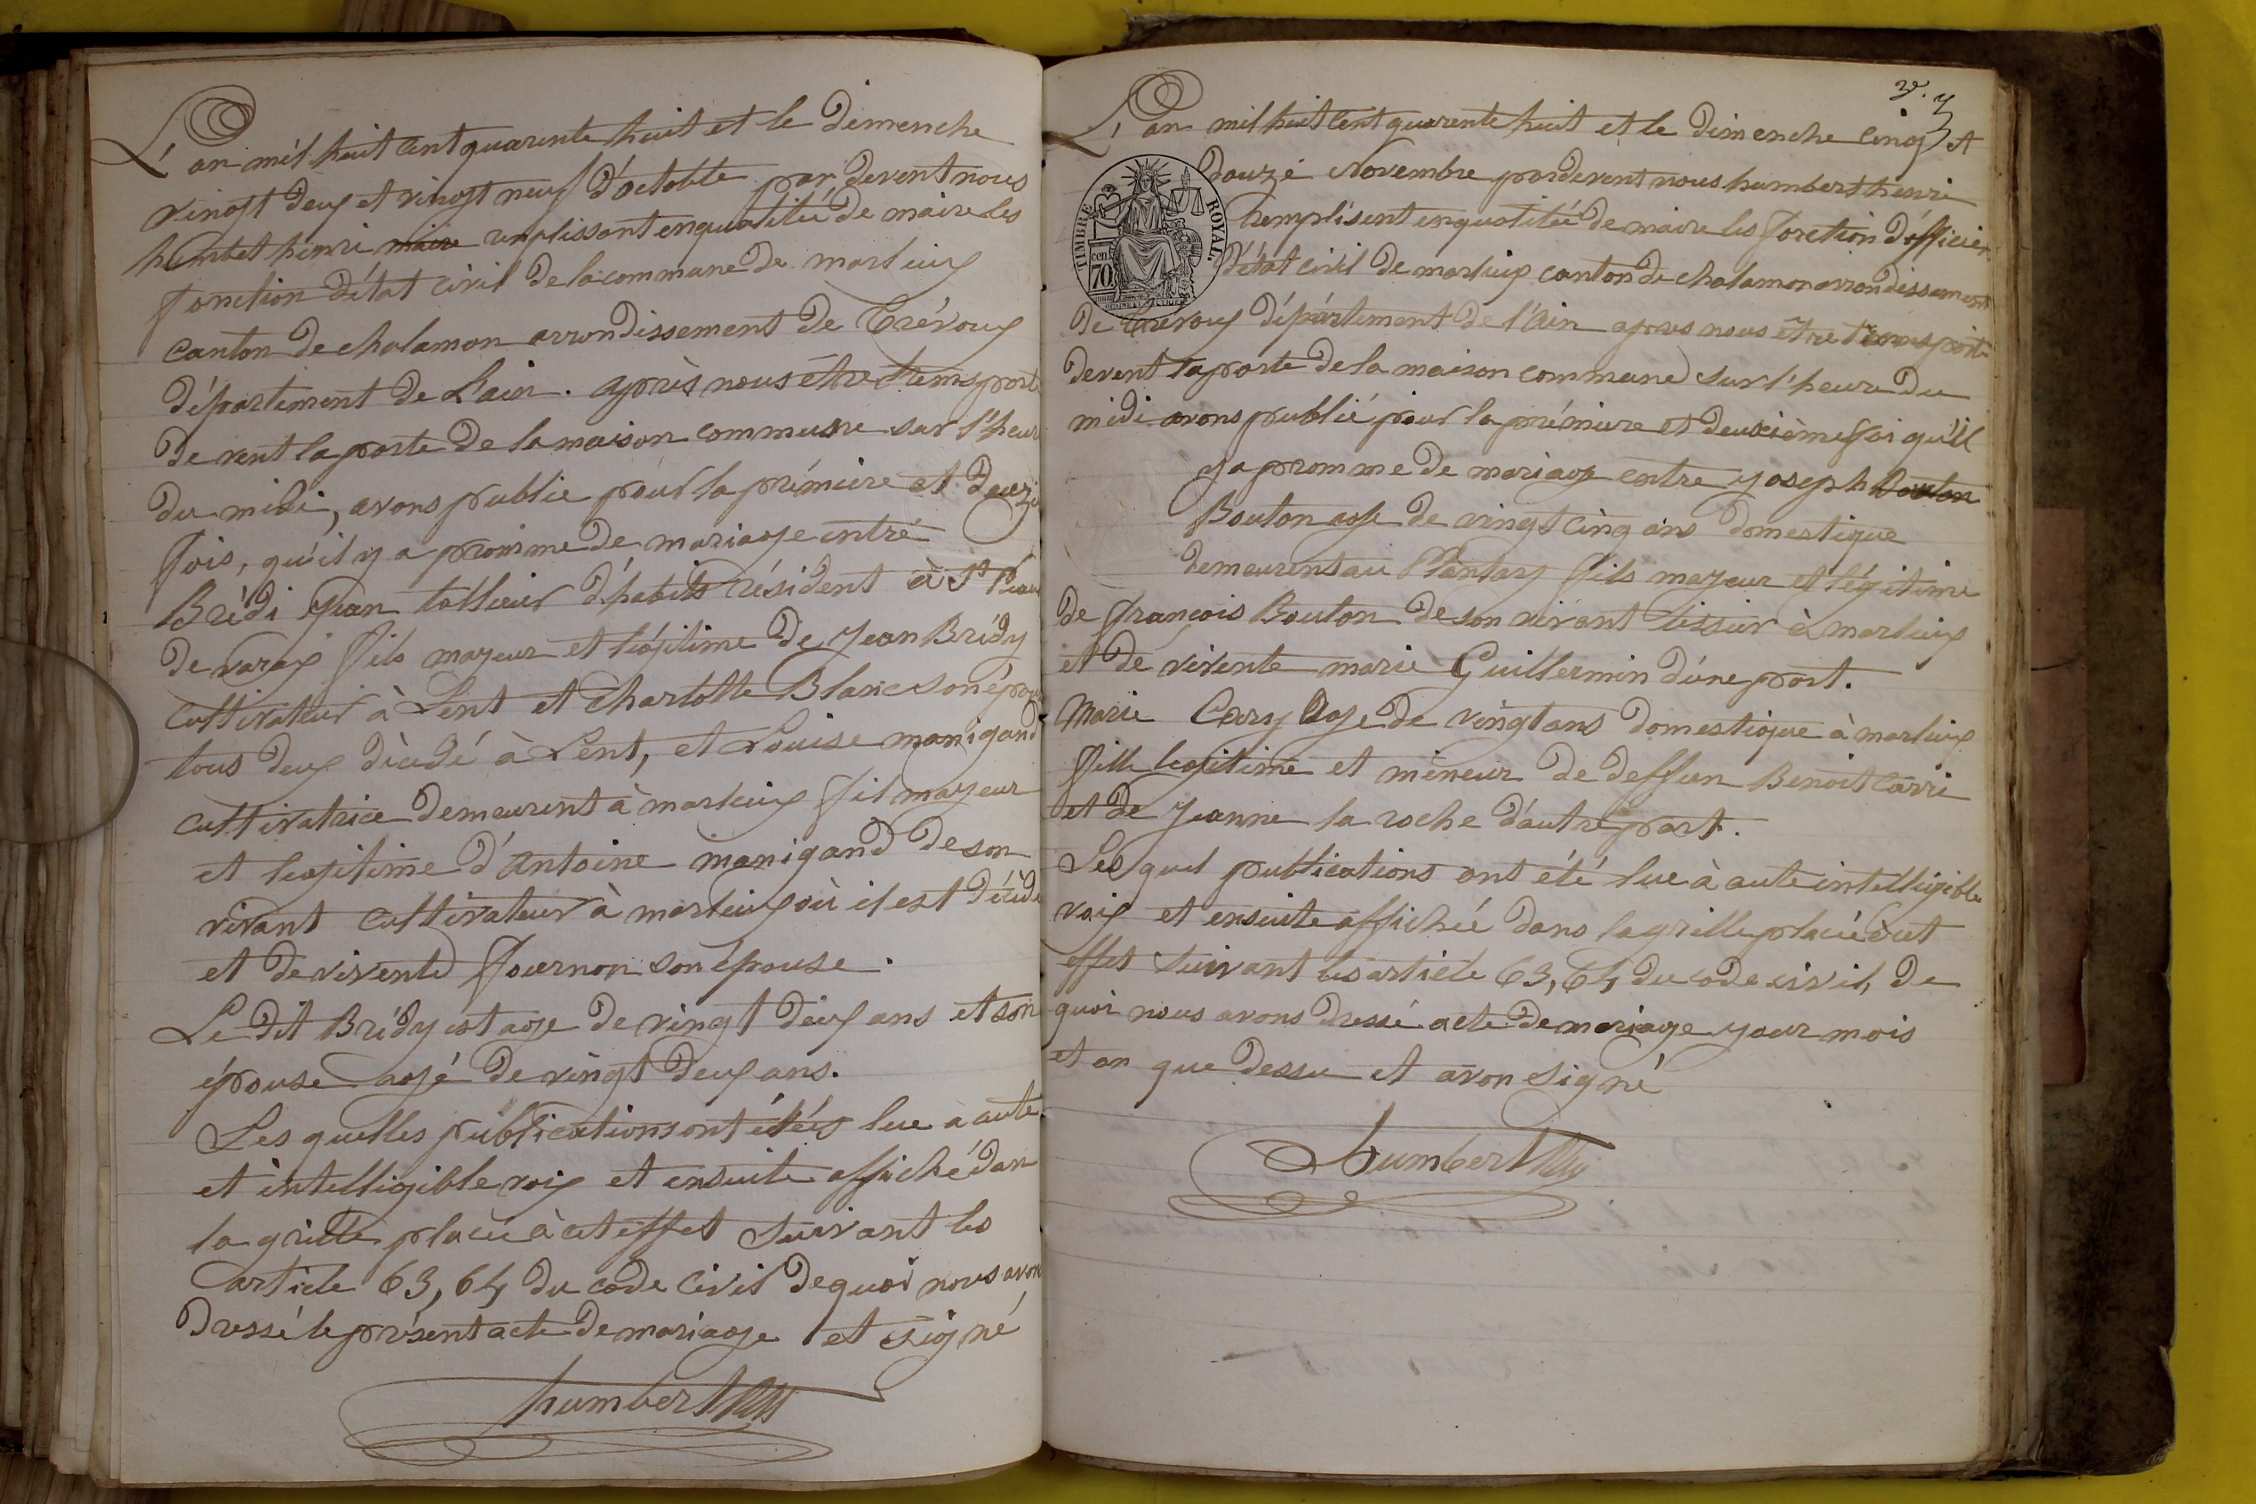 L'an mil huit cent quarente huit et le dimenche
vingt deux et vingt neuf d'octobte par devent nous
humbet henri maire remplissant enqualitée de maire les
fonction d'état civil de la commune de marlieux
canton de chalamon arrondissement de Trévoux
département de L'ain. après nous être trensporté
de vent la porte de la maison commune sur l'heur
du midi, avons publie pour la prémiere et deuzie
fois, qu'il y a promme de mariage entré
Brédi Jean tallieur d'habits résident à St Paul
de varax fils mayeur et légitime de Jean Brédy
cultivateur à Lent et Charlotte Blanc son épou
tous deux dècédé à Lent, et Louise manigand
cultivatrice demeurent à marlieux fil mayeur
et legitime d'Antoine manigand de son
vivant cultivateur à marlieux où il est décédé
et de vivente fournon son epouse.
Le dit Brédy est age de vingt deux ans et son
épouse agé de vingt deux ans.
Les quelles publications ont étéés lue à aute
et intelligible voix et ensuite affiché dan
la grille placée à cet effet suivant les
article 63, 64 du code civil de quoi nous avon
dressé le présent acte de mariage et signé
humbert
v. 3
L'an mil huit cent quarente huit et le dimenche cinq et
douze Novembre pardevent nous humbert henri
remplisent enqualitée de maire les fonction d'officier
d'état civil de marlieux canton de chalamon arrondissement
de Trevoux département de l'Ain apres nous être transporté
devent la porte de la maison commune sur l'heure du
midi avons publié pour la prémiere et deuxième foi qu'il
y a promme de mariage entre yoseph Bouton
Bouton age de vingt cinq ans domestique
demeurent au Plantay fils mayeur et légitime
de françois Bouton de son vivant tissier à marlieux
et de vivente marie Guillermin d'une part.
Marie Cary Age de vingt ans domestique à marlieux
fille legitime et mineur de deffun Benoit Carri
et de Jeanne la roche d'autre part.
Les quel publications ont été lue à aute intelligible
voix et ensuite affichée dans la grille placée à cet
effet suivant les article 63, 64 du code civil, de
quoi nous avons dressé acte de mariage your mois
et an que dessu et avon signé
humbert
TIMBRE ROYAL
cen 70